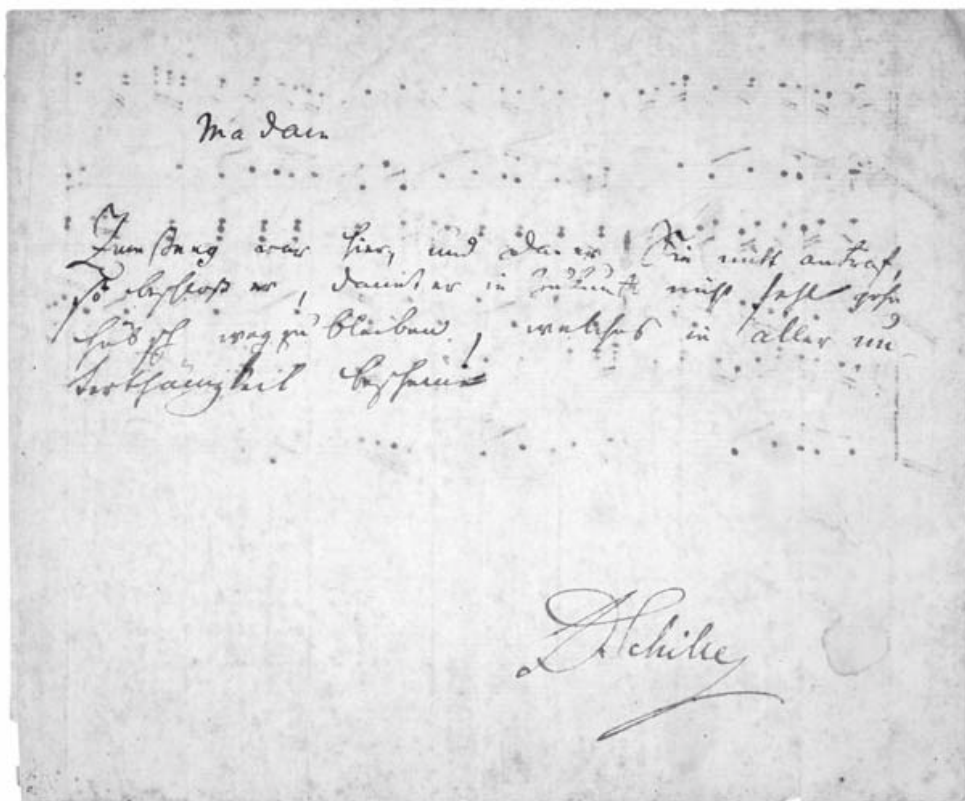 Madam
war hier, und da er Sie nicht antraf,
so beschloß er, damit er in Zukunft nicht fehl gehe
hübsch wegzubleiben, welches in aller un-
terthänigkeit bescheint